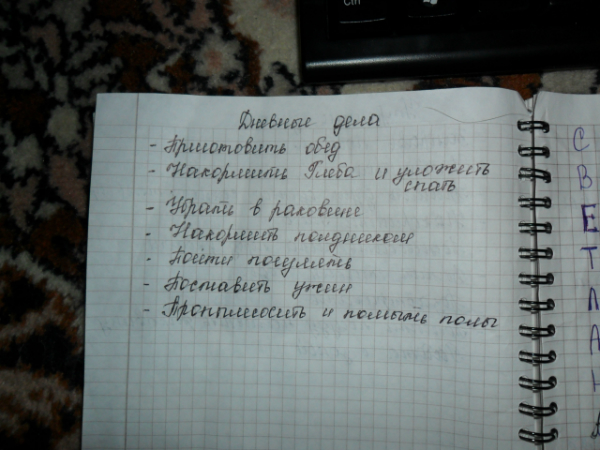 Ctrl
Дневные дела
- Приготовить обед
- Накормить Глеба и уложить
спать
- Убрать в раковине
- Накормить полдником
- Пойти погулять
- Поставить ужин
- Пропылесосить и помыть полы
С
В
Е
Т
Л
А
Н
А